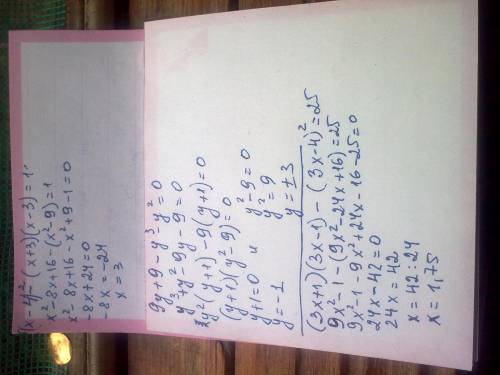 (x-4)² - (x+3)(x-3) = 1
x² - 8x + 16 - (x² - 9) = 1
x² - 8x + 16 - x² + 9 - 1 = 0
-8x + 24 = 0
-8x = -24
x = 3
9y + 9 - y³ - y² = 0
y³ + y² - 9y - 9 = 0
y²(y+1) - 9(y+1) = 0
(y+1)(y² - 9) = 0
y+1 = 0 и y² - 9 = 0
y = -1 y² = 9
y = ±3
(3x+1)(3x-1) - (3x-4)² = 25
9x² - 1 - (9x² - 24x + 16) = 25
9x² - 1 - 9x² + 24x - 16 - 25 = 0
24x - 42 = 0
24x = 42
x = 42:24
x = 1,75